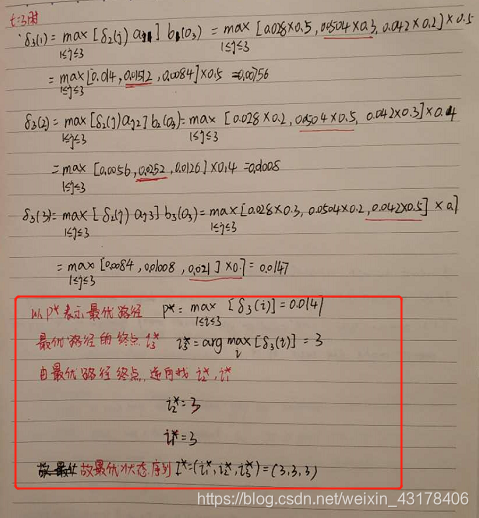 t=3时
δ₃(1) = max [δ₂(j) aj1] b1(o₃) = max [0.028×0.5, 0.0504×0.3, 0.042×0.2] × 0.5
1≤j≤3 1≤j≤3
= max [0.014, 0.01512, 0.0084] × 0.5 = 0.00756
1≤j≤3
δ₃(2) = max [δ₂(j) aj2] b₂(o₃) = max [0.028×0.2, 0.0504×0.5, 0.042×0.3] × 0.4
1≤j≤3 1≤j≤3
= max [0.0056, 0.0252, 0.0126] × 0.4 = 0.01008
1≤j≤3
δ₃(3) = max [δ₂(j) aj3] b₃(o₃) = max [0.028×0.3, 0.0504×0.2, 0.042×0.5] × 0.7
1≤j≤3 1≤j≤3
= max [0.0084, 0.01008, 0.021] × 0.7 = 0.0147
1≤j≤3
以P*表示最优路径 P* = max [δ₃(i)] = 0.0147
1≤i≤3
最优路径的终点 i₃* i₃* = arg max [δ₃(i)] = 3
i
由最优路径终点, 逆向找 i₂*, i₁*
i₂* = 3
i₁* = 3
故最优状态序列 I* = (i₁*, i₂*, i₃*) = (3, 3, 3)
https://blog.csdn.net/weixin_43178406